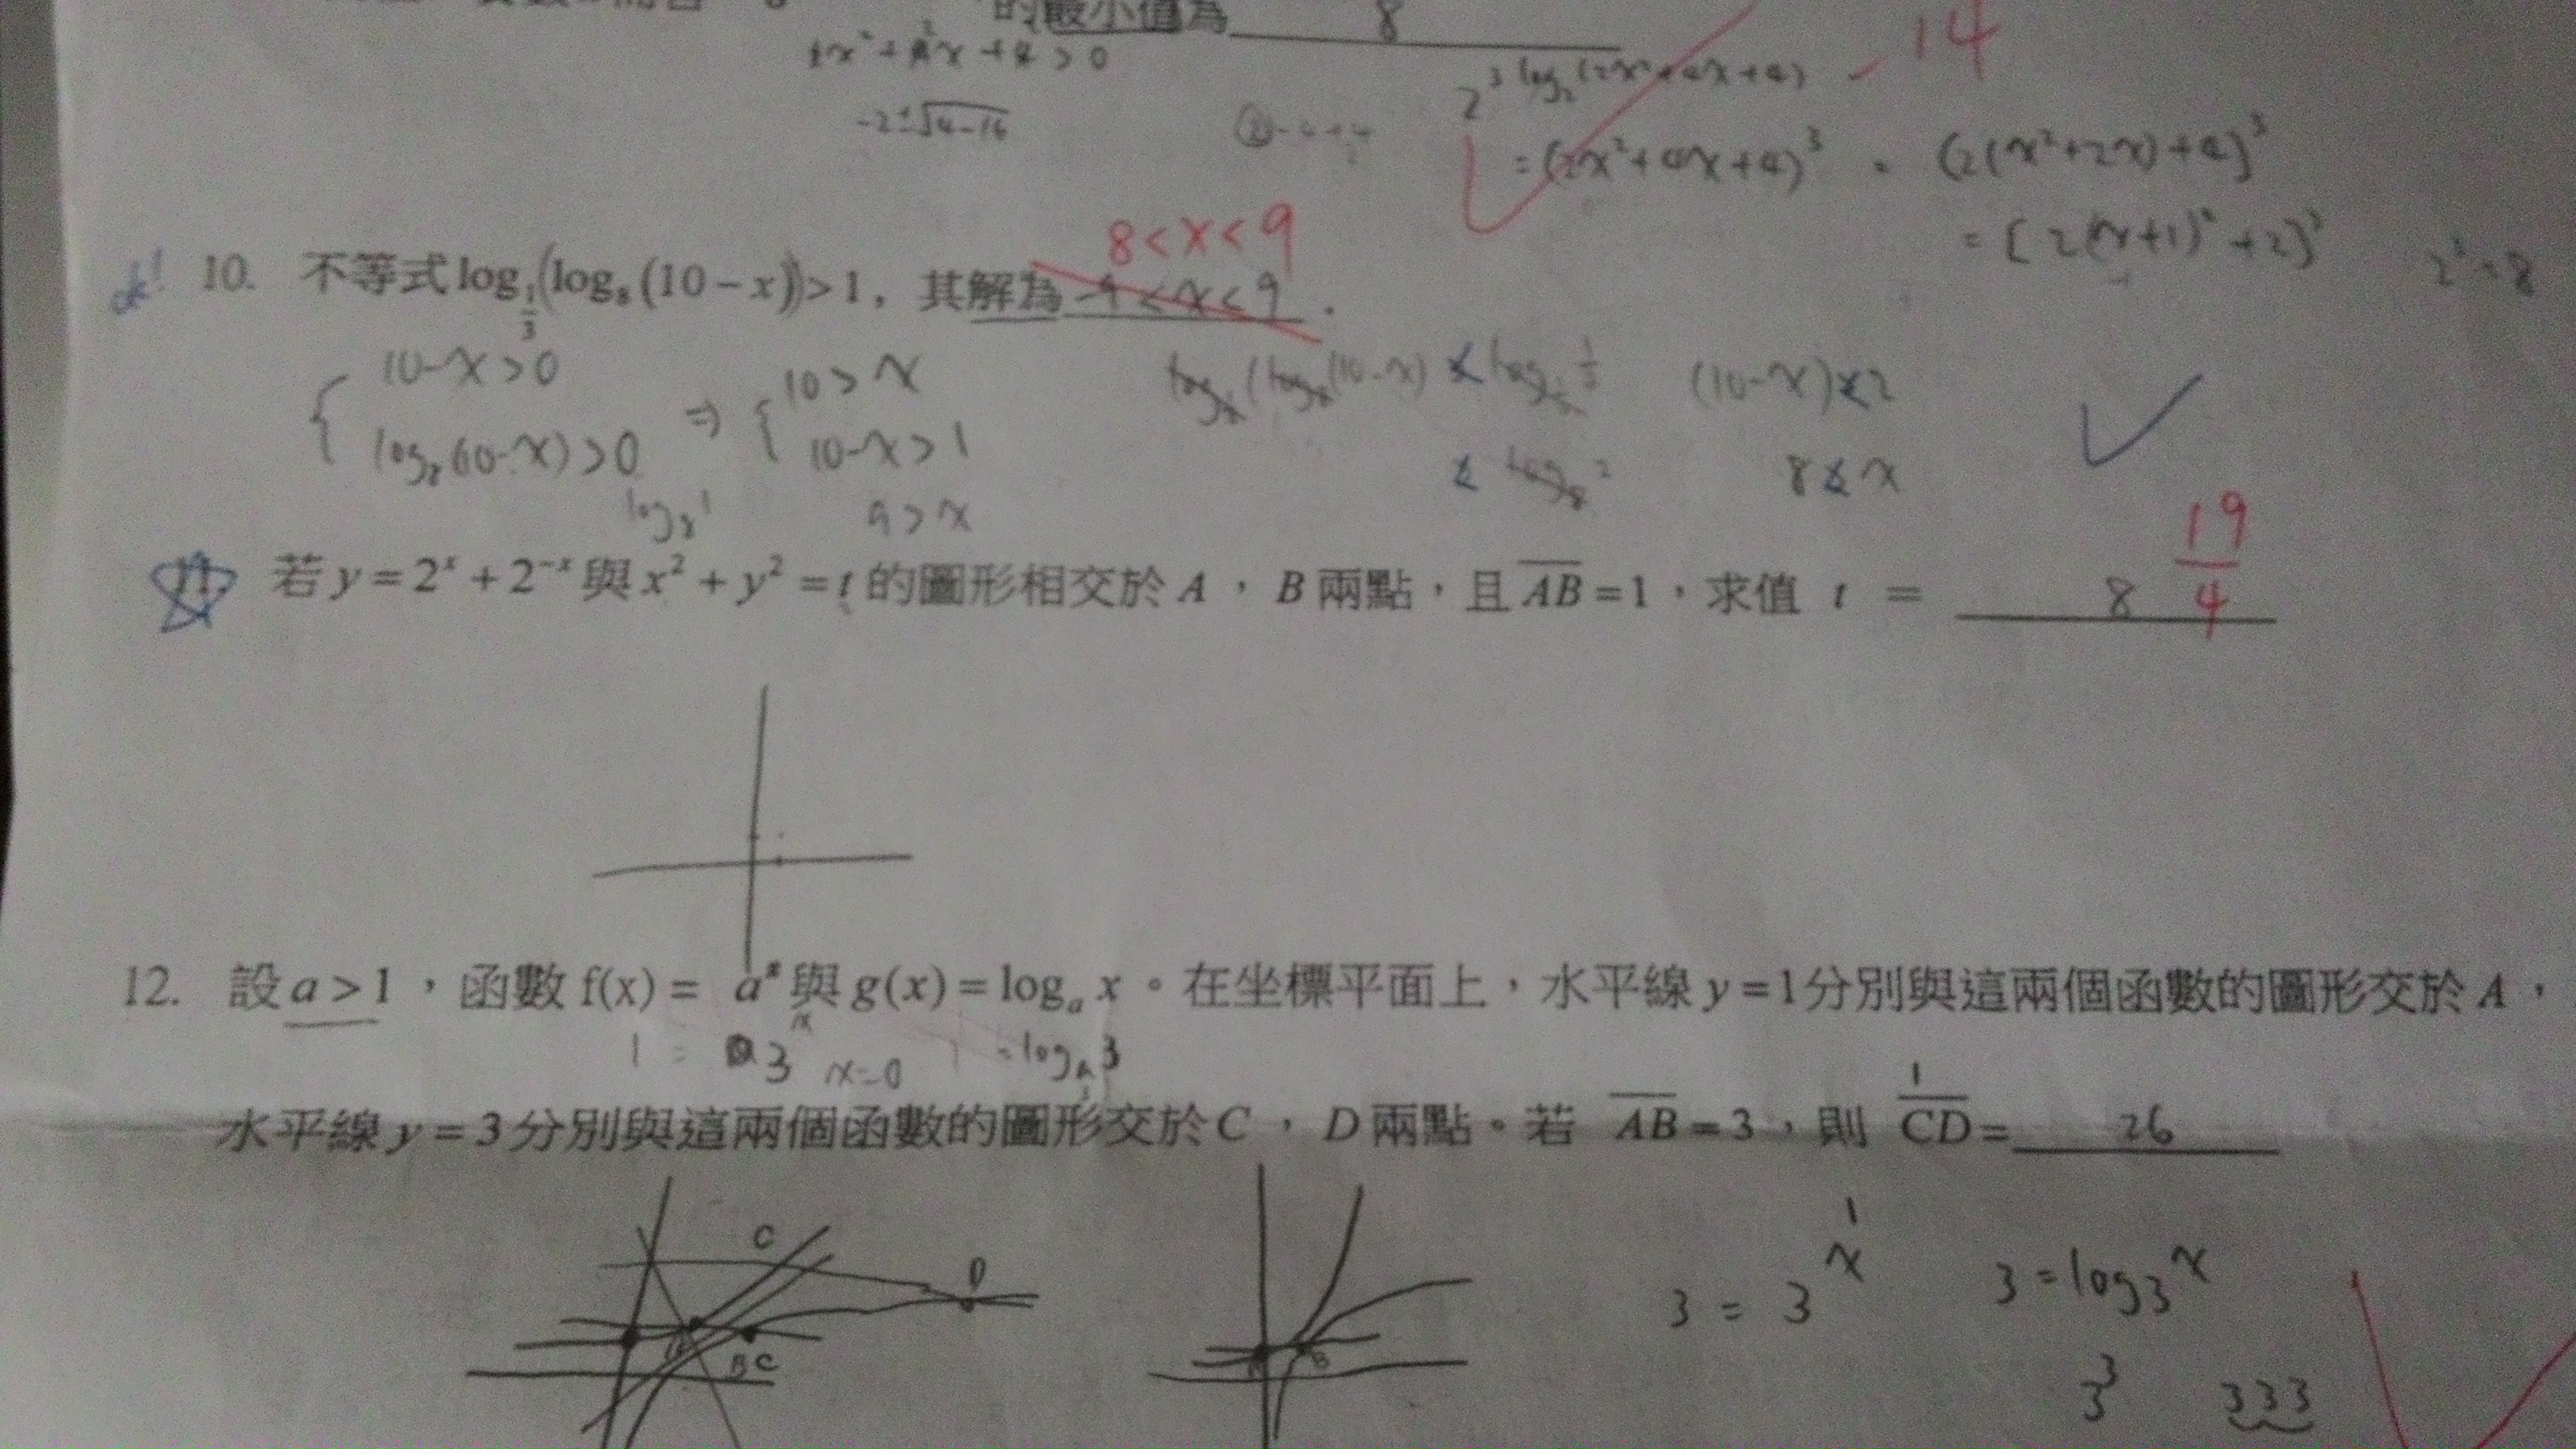 的最小值為 8
x² + 2x + 4 > 0
-14
2^{3 log₂(2x²+4x+4)}
-2±√4-16
= (2x²+4x+4)³ = (2(x²+2x)+4)³
= [2(x+1)²+2]³ 2³=8
8<x<9
ok! 10. 不等式 log_{1/3}(log₈(10-x))>1，其解為 -9<x<9 .
10-x>0 10>x (10-x)<2
log₈(10-x)>0 ⇒ 10-x>1 8<x
log₈1 9>x
19/4
11. 若 y=2ˣ+2⁻ˣ 與 x²+y²=t 的圖形相交於 A，B 兩點，且 AB=1，求值 t = 8
12. 設 a>1，函數 f(x)= aˣ 與 g(x)=logₐ x。在坐標平面上，水平線 y=1 分別與這兩個函數的圖形交於 A，
1 = 3ˣ x=0 1 = logₐ3
水平線 y=3 分別與這兩個函數的圖形交於 C，D 兩點。若 AB=3，則 CD= 26
1
C
D
B C
A B
3 = 3ˣ 1 3 = log₃x
3³ 333